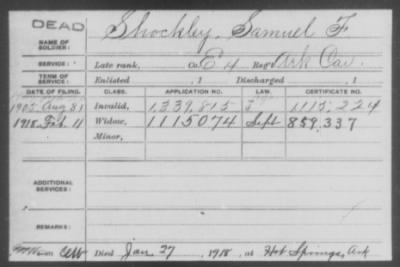 DEAD
NAME OF SOLDIER: Shockley, Samuel F
SERVICE: Late rank, Co. E 4 Reg't Ark Cav.
TERM OF SERVICE: Enlisted , 1 Discharged , 1
DATE OF FILING. CLASS. APPLICATION NO. LAW. CERTIFICATE NO.
1905 Aug 8 Invalid, 1,339,815 1115,224
1918 Feb 11 Widow, 1115074 Sept 859,337
Minor,
ADDITIONAL SERVICES:
REMARKS:
Died Jan 27, 1918, at Hot Springs, Ark